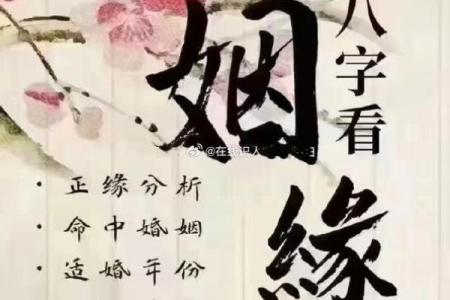 八字看
姻緣
@在线识人
· 正缘分析
· 命中婚姻
· 适婚年份